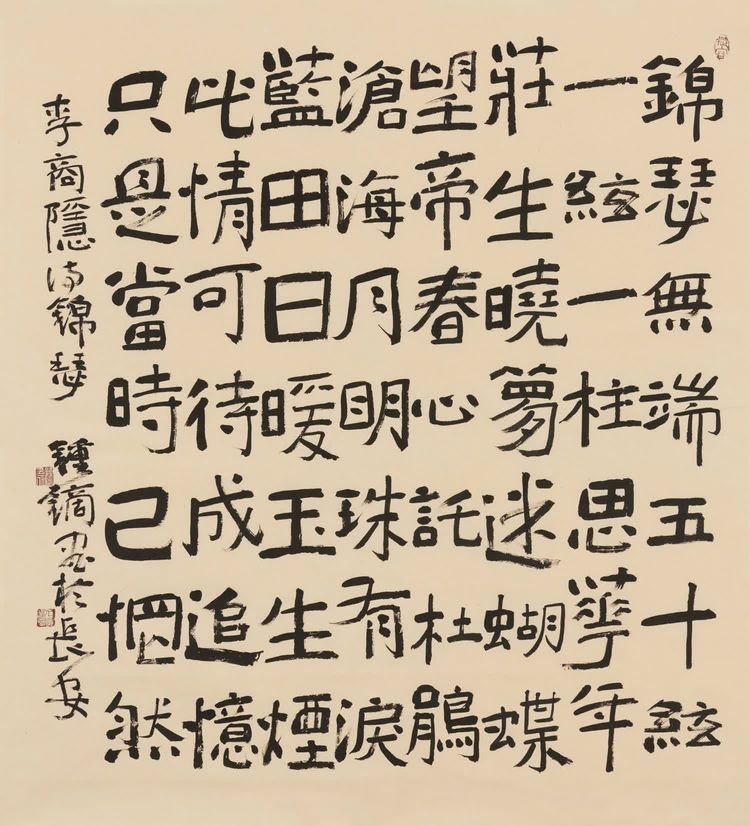 錦瑟無端五十絃
一絃一柱思華年
莊生曉夢迷蝴蝶
望帝春心託杜鵑
滄海月明珠有淚
藍田日暖玉生煙
此情可待成追憶
只是當時已惘然
李商隱詩錦瑟 鍾鏑書於長安